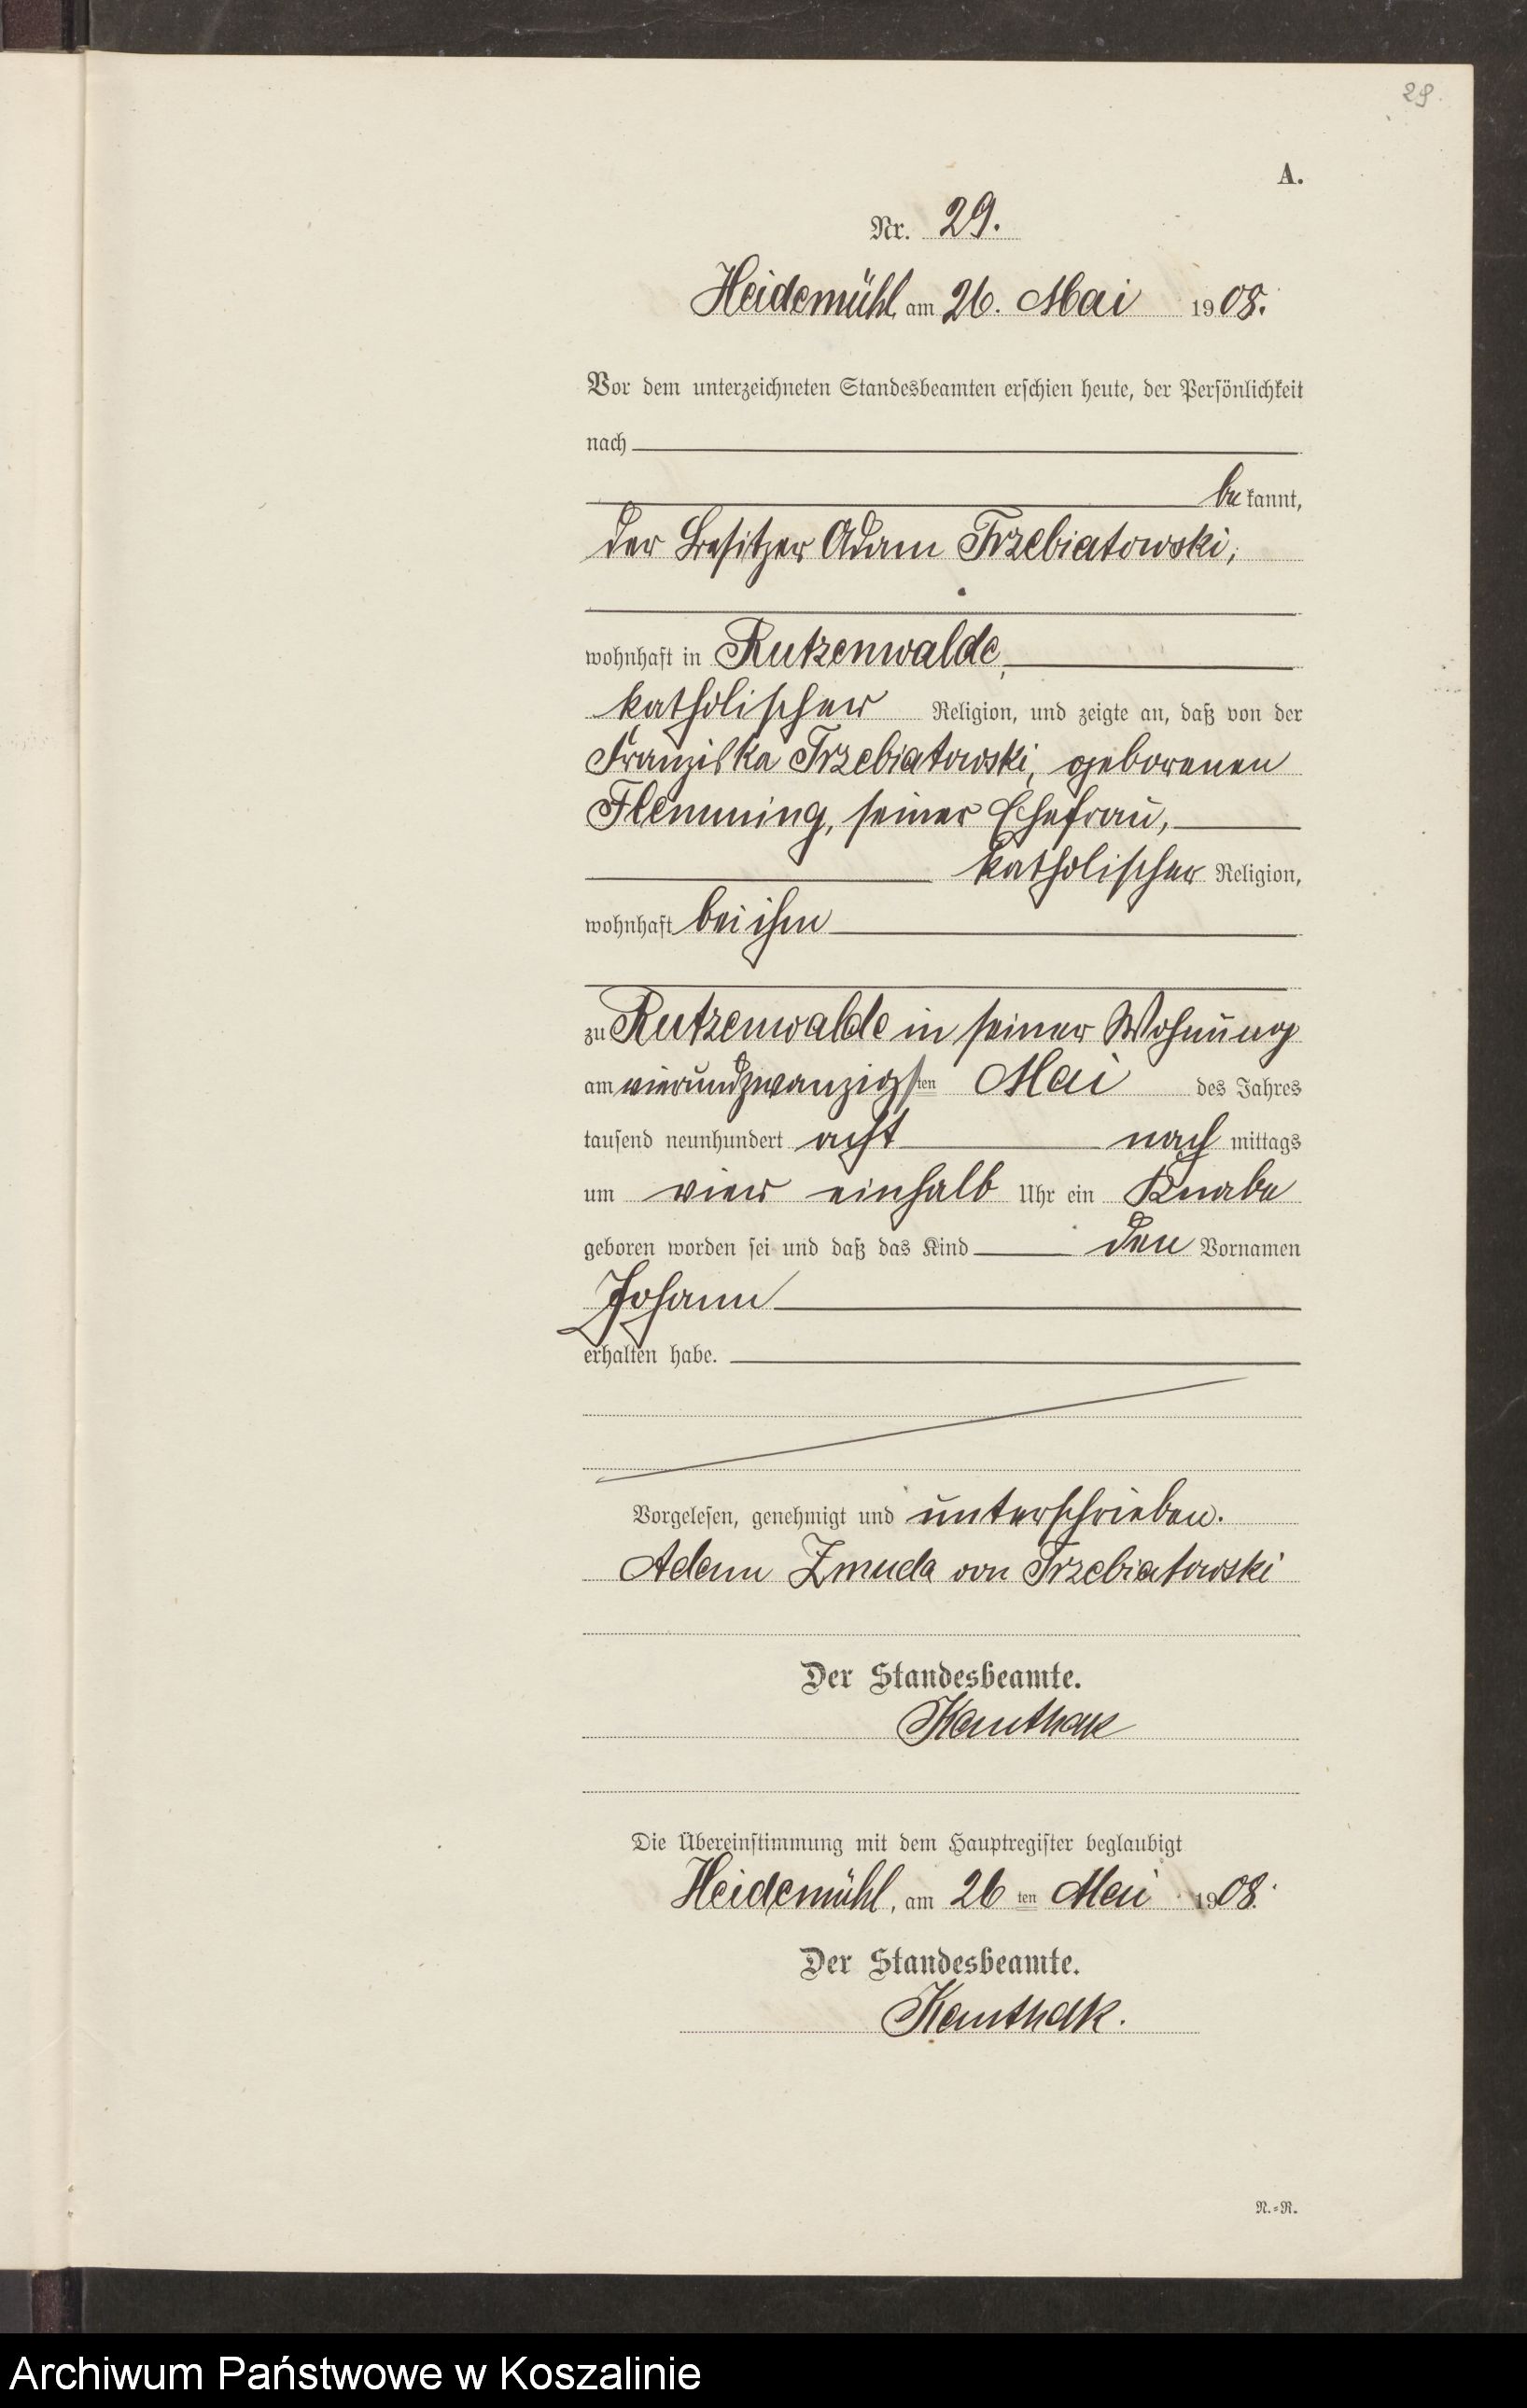 29.
A.
Nr. 29.
Heidemühl, am 26. Mai 1908.
Vor dem unterzeichneten Standesbeamten erschien heute, der Persönlichkeit
nach
bekannt,
der Besitzer Adam Trzebiatowski,
wohnhaft in Rutzenwalde,
katholischer Religion, und zeigte an, daß von der
Franziska Trzebiatowski, geborenen
Flemming, seiner Ehefrau,
katholischer Religion,
wohnhaft bei ihm
zu Rutzenwalde in seiner Wohnung
am vierundzwanzigsten Mai des Jahres
tausend neunhundert acht nachmittags
um vier einhalb Uhr ein Knabe
geboren worden sei und daß das Kind den Vornamen
Johann
erhalten habe.
Vorgelesen, genehmigt und unterschrieben.
Adam Zmuda von Trzebiatowski
Der Standesbeamte.
Kauthak
Die Übereinstimmung mit dem Hauptregister beglaubigt
Heidemühl, am 26 ten Mai 1908.
Der Standesbeamte.
Kauthak.
N.=R.
Archiwum Państwowe w Koszalinie